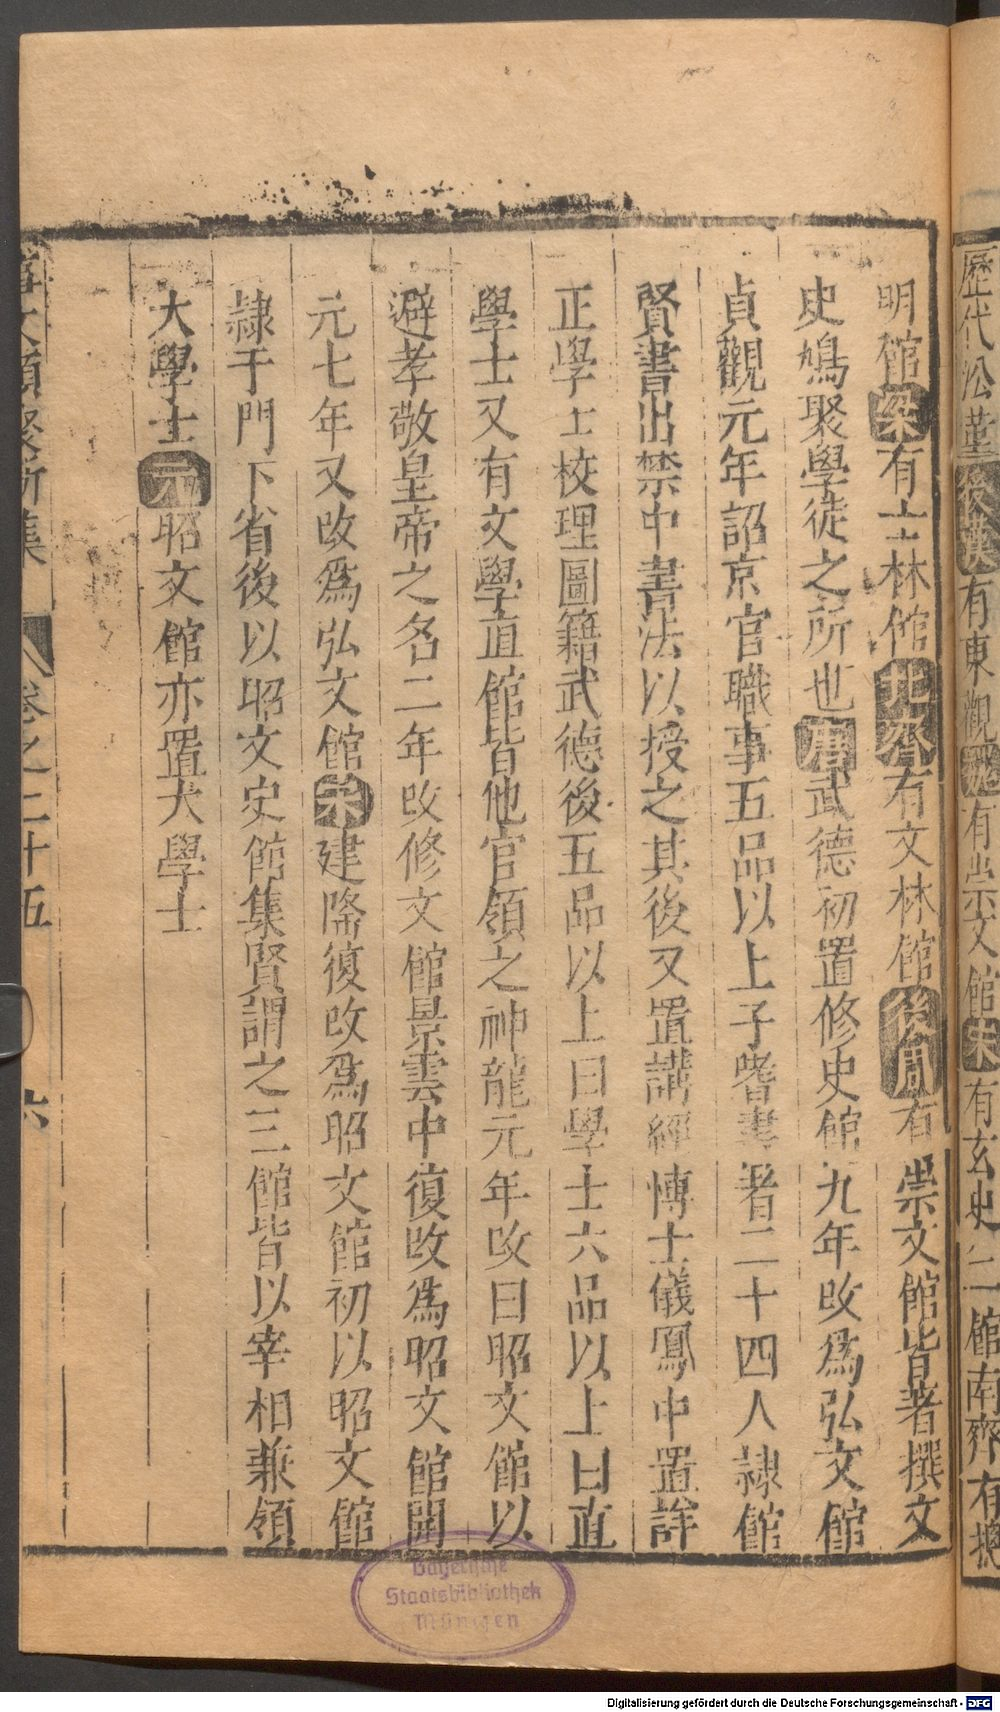 歷代沿革後漢有東觀魏有崇文館宋有玄史二館南齊有摠
明館梁有士林館北齊有文林館後周有崇文館皆著撰文
史鳩聚學徒之所也唐武德初置修史館九年改爲弘文館
貞觀元年詔京官職事五品以上子嗜書者二十四人隷館
賢書出禁中書法以授之其後又置講經博士儀鳳中置詳
正學士校理圖籍武德後五品以上曰學士六品以上曰直
學士又有文學直館皆他官領之神龍元年改曰昭文館以
避孝敬皇帝之名二年改修文館景雲中復改爲昭文館開
元七年又改爲弘文館宋建隆復改爲昭文館初以昭文館
隷于門下省後以昭文史館集賢謂之三館皆以宰相兼領
大學士元昭文館亦置大學士
事文類聚新集 卷之二十五 六
Bayerische
Staatsbibliothek
München
Digitalisierung gefördert durch die Deutsche Forschungsgemeinschaft - DFG